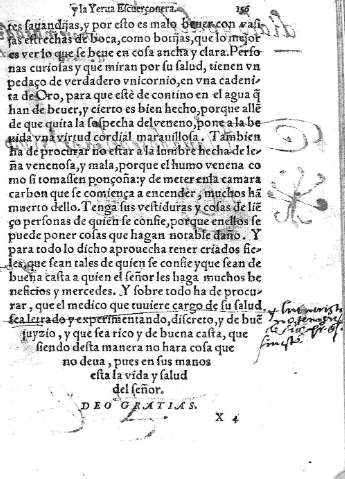 y la Yerua Escuerçonera. 156
res sauandijas, y por esto es malo beuer con vasi
jas estrechas de boca, como botijas, que lo mejor
es ver lo que se beue en cosa ancha y clara. Perso
nas curiosas y que miran por su salud, tienen vn
pedaço de verdadero vnicornio, en vna cadeni
ta de Oro, para que estè de contino en el agua q̃
han de beuer, y cierto es bien hecho, porque allẽ
de que quita la sospecha del veneno, pone a la be
uida vna virtud cordial marauillosa. Tambien
ha de procurar no estar a la lumbre hecha de le
ña venenosa, y mala, porque el humo venena co
mo si tomassen ponçoña: y de meter en la camara
carbon que se comiença a encender, muchos hã
muerto dello. Tenga sus vestiduras y cosas de liẽ
ço personas de quien se confie, porque enellos se
puede poner cosas que hagan notable daño. Y
para todo lo dicho aprouecha tener criados fie-
les, que sean tales de quien se confie y que sean de
buena casta a quien el señor les haga muchos be
neficios y mercedes. Y sobre todo ha de procu-
rar, que el medico que tuuiere cargo de su salud
sea letrado y experimentando, discreto, y de buẽ
juyzio, y que sea rico y de buena casta, que
siendo desta manera no hara cosa que
no deua, pues en sus manos
esta la vida y salud
del señor.
DEO GRATIAS.
X 4